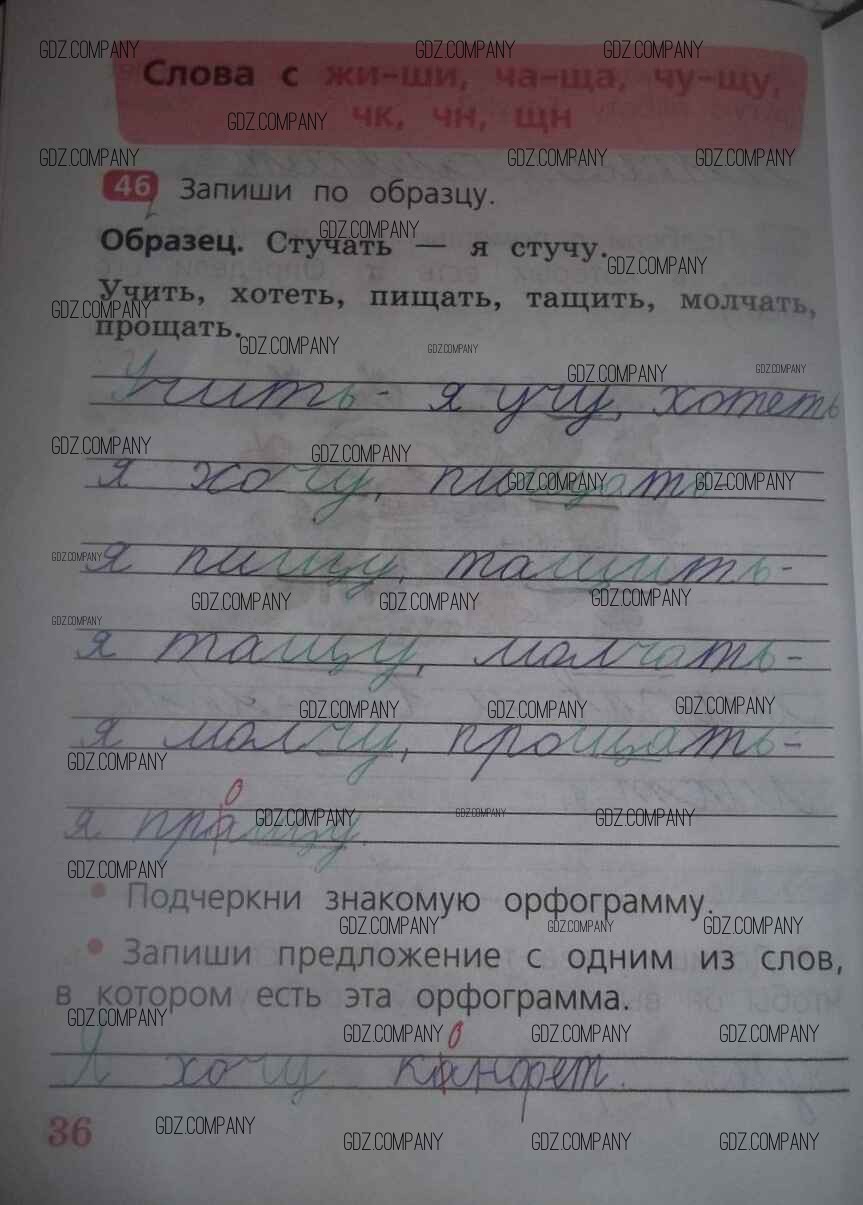 Слова с жи–ши, ча–ща, чу–щу,
чк, чн, щн
46 Запиши по образцу.
Образец. Стучать — я стучу.
Учить, хотеть, пищать, тащить, молчать,
прощать.
Учить - я учу, хотеть
я хочу, пищать -
я пищу, тащить -
я тащу, молчать -
я молчу, прощать -
о
я пращу.
• Подчеркни знакомую орфограмму.
• Запиши предложение с одним из слов,
в котором есть эта орфограмма.
о
Я хочу канфет.
36
GDZ.COMPANY